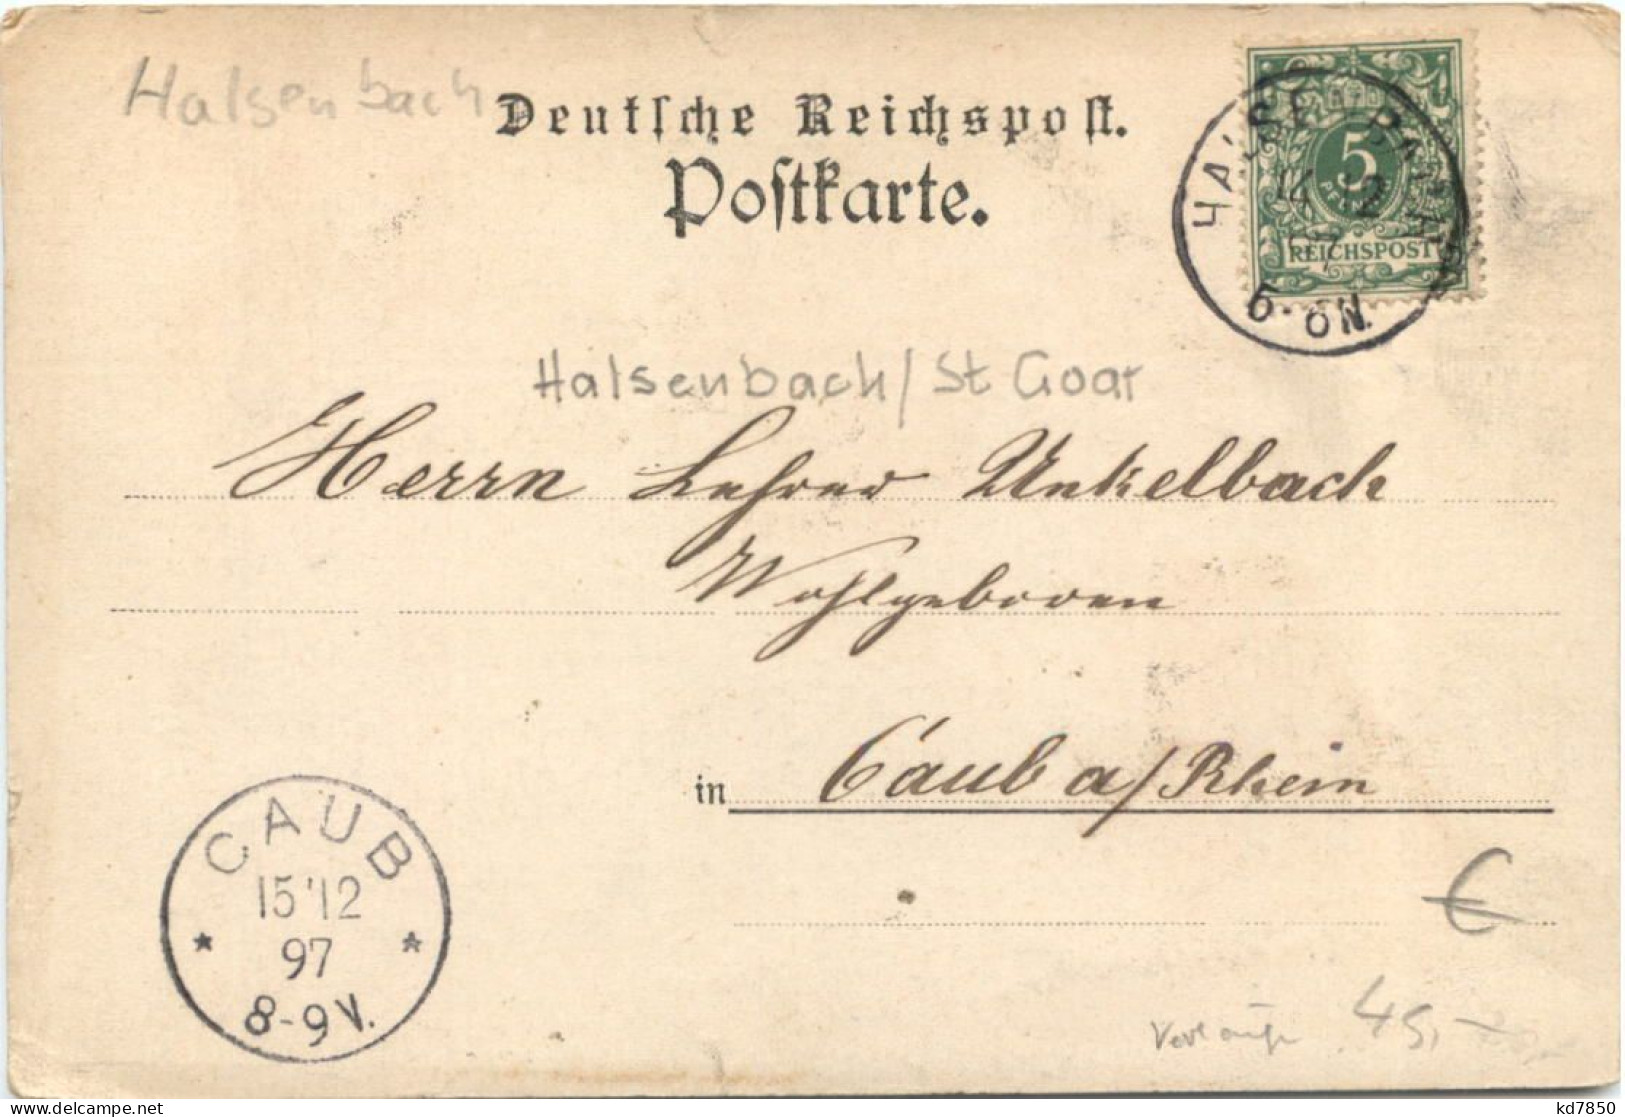 Halsenbach
Deutsche Reichspost.
Postkarte.
5
REICHSPOST
HALSENBACH
14 12
97
6. ON.
Halsenbach / St Goar
Herrn Lehrer Unkelbach
Wohlgeboren
in Caub a/Rhein
CAUB
15 12
97
* *
8-9 V.
€
49,-
kd7850